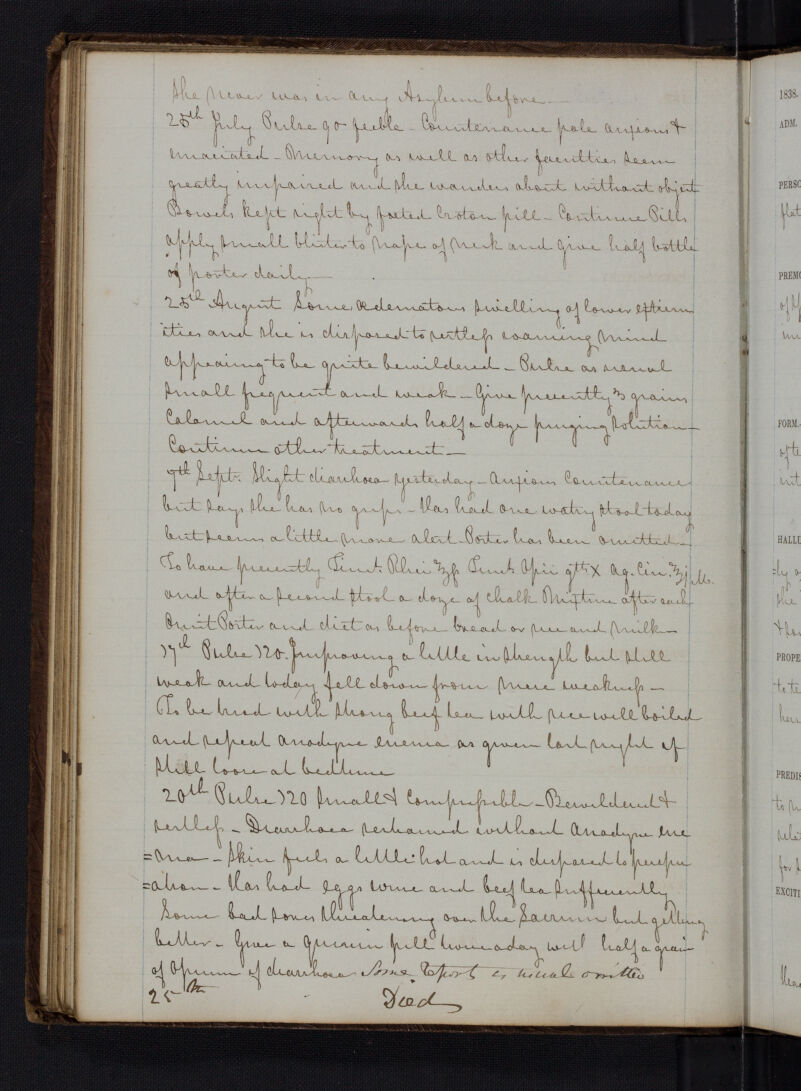 She never was in any Asylum before —
25th July Pulse 90 feeble - Countenance pale anxious &
emaciated - Memory as well as other faculties seem
greatly impaired and she wanders about without object
Bowels kept right by foeted Croton pill - Continue Pills
apply small blister to nape of neck and give half bottle
of porter daily —
25th August Some Œdematous swelling of lower extrem
ities and she is disposed to restless roaming mind
appearing to be quite bewildered - Pulse as usual
small frequent and weak - Give presently 3 grains
Calomel and afterwards half a doze purging solution -
Continue other treatment —
7th Septr. Slight diarrhoea yesterday - anxious Countenance
but says she has no gripes - Has had one watery stool today
but seems a little more alert Porter has been omitted -
To have presently Tinct. Rhei Tinct. Opii gtts X Aq. Cin.
and after a second stool a doze of chalk Mixture after each
Omit Porter and diet as before bread or rice and milk —
17th Pulse 120. Improving a little in strength but still
weak and today fell down from mere weakness —
To be tried with strong beef tea with rice well boiled
and repeat anodyne enema as given last night if
still loose at bedtime
20th Pulse 120 small & Compressible - Bewildered &
restless - Diarrhoea restrained without Anodyne ene
=ma - Skin feels a little hot and is disposed to perspir
=ation - Has had eggs wine and beef tea sufficiently
Some bad sores threatening over the Sacrum but getting
better - Give a Quinine pill twice a day with half a grain
of Opium if diarrhoea Some Report as usual omitted
25th Died
1838.
ADM.
PERSO
PREMO
FORM.
HALLU
PROPE
PREDIS
EXCITI